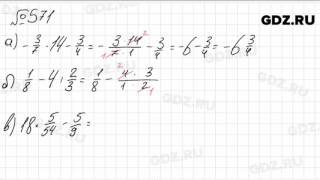 №571
GDZ.RU
а) -3/7 · 14 - 3/4 = - 3·14/7·1 - 3/4 = -6 - 3/4 = -6 3/4
б) 1/8 - 4 : 2/3 = 1/8 - 4·3/1·2
в) 18 · 5/54 - 5/9 =